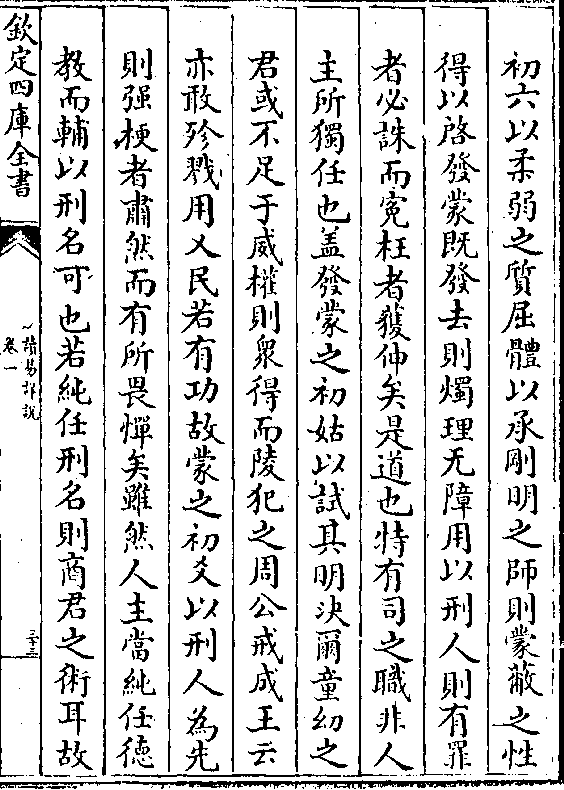 初六以柔弱之質屈體以承剛明之師則蒙蔽之性
得以啓發蒙既發去則燭理无障用以刑人則有罪
者必誅而寃枉者獲伸矣是道也特有司之職非人
主所獨任也盖發蒙之初姑以試其明決爾童幼之
君或不足于威權則衆得而陵犯之周公戒成王云
亦敢殄戮用乂民若有功故蒙之初爻以刑人為先
則强梗者肅然而有所畏憚矣雖然人主當純任德
教而輔以刑名可也若純任刑名則商君之術耳故
欽定四庫全書
讀易詳說
卷一
三十三